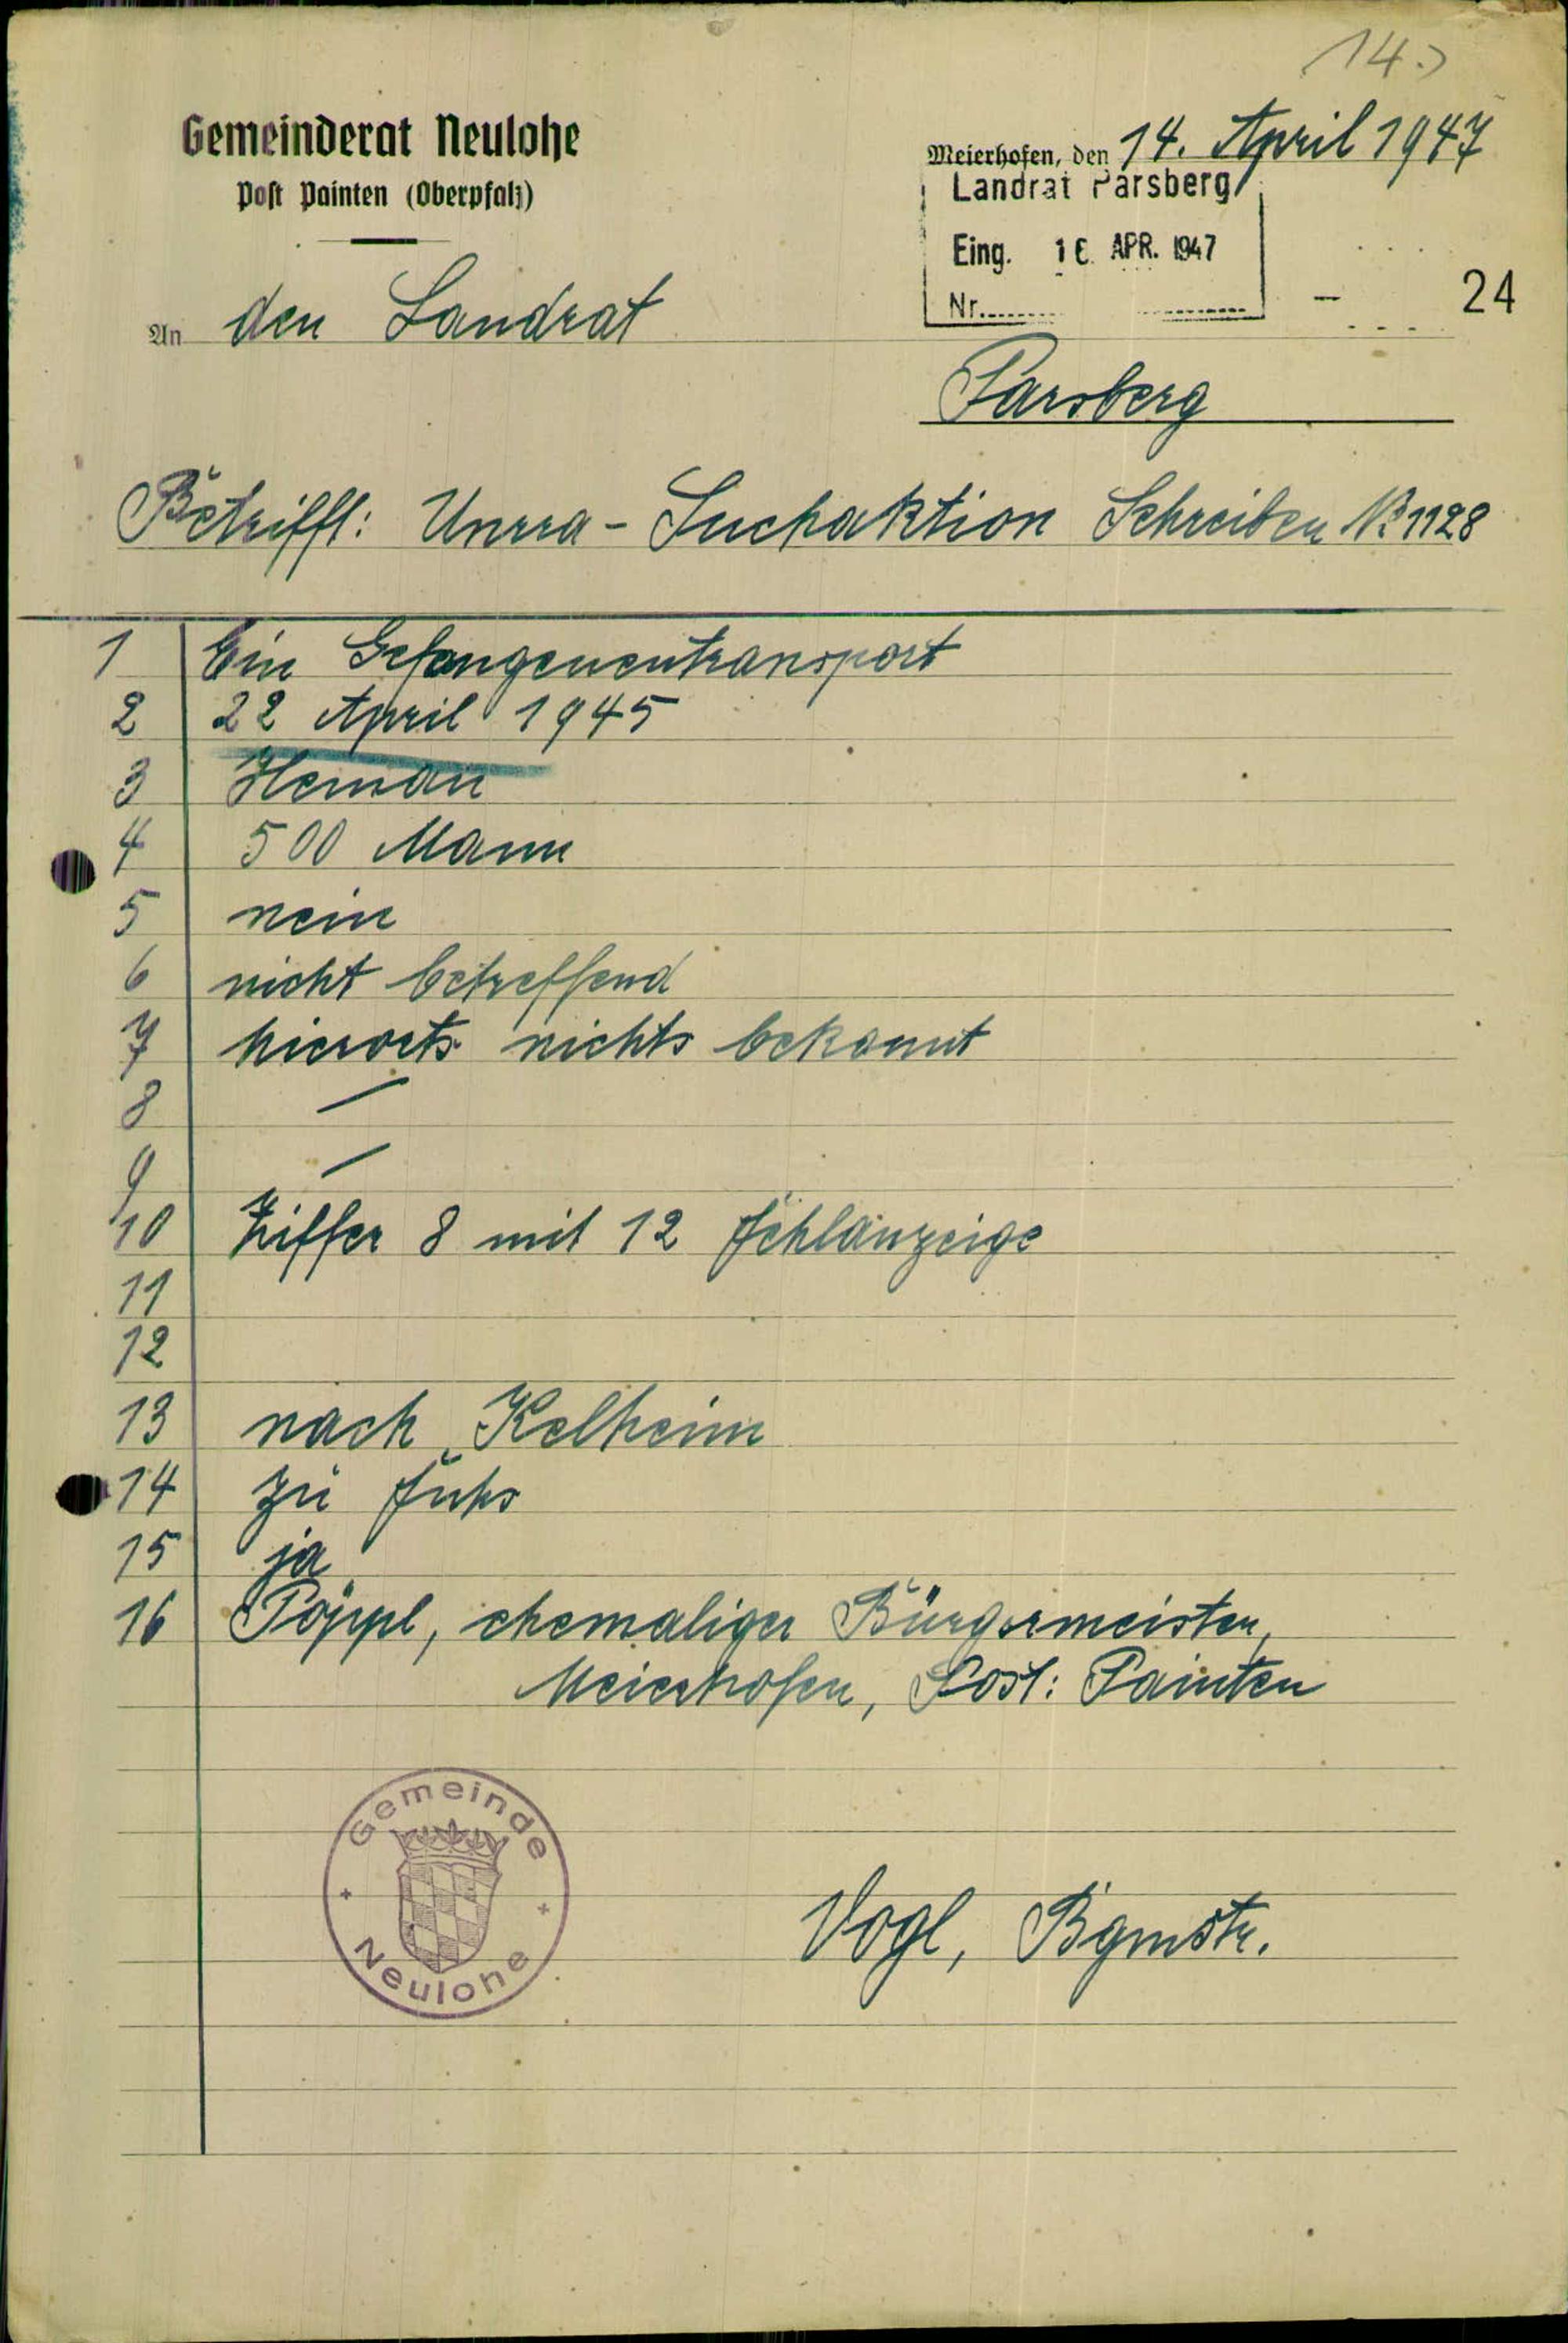 14.)
Gemeinderat Neulohe
Post Painten (Oberpfalz)
Meierhofen, den 14. April 1947
Landrat Parsberg
Eing. 16 APR. 1947
Nr.
24
An den Landrat
Parsberg
Betrifft: Unrra - Suchaktion Schreiben № 1128
1 Ein Gefangenentransport
2 22 April 1945
3 Hemau
4 500 Mann
5 nein
6 nicht betreffend
7 hierorts nichts bekannt
8 —
9 —
10 Ziffer 8 mit 12 Fehlanzeige
11
12
13 nach Kelheim
14 zu Fuhs
15 ja
16 Pöppl, ehemaliger Bürgermeister,
Meierhofen, Post: Painten
Gemeinde
Neulohe
Vogl, Bgmstr.